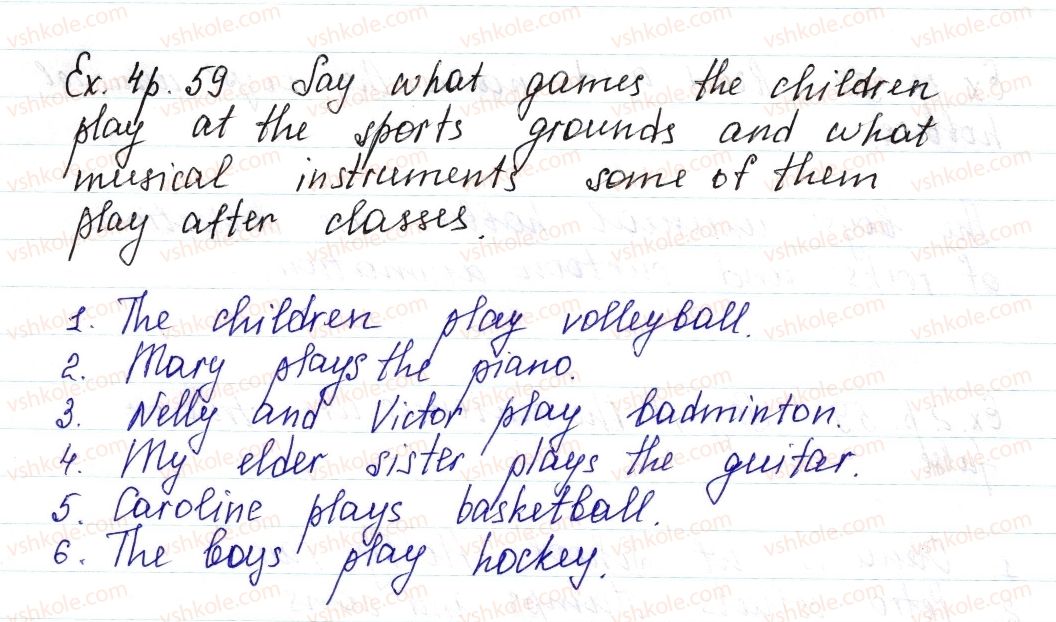 Ex. 4p. 59 Say what games the children
play at the sports grounds and what
musical instruments some of them
play after classes.
1. The children play volleyball.
2. Mary plays the piano.
3. Nelly and Victor play badminton.
4. My elder sister plays the guitar.
5. Caroline plays basketball.
6. The boys play hockey.